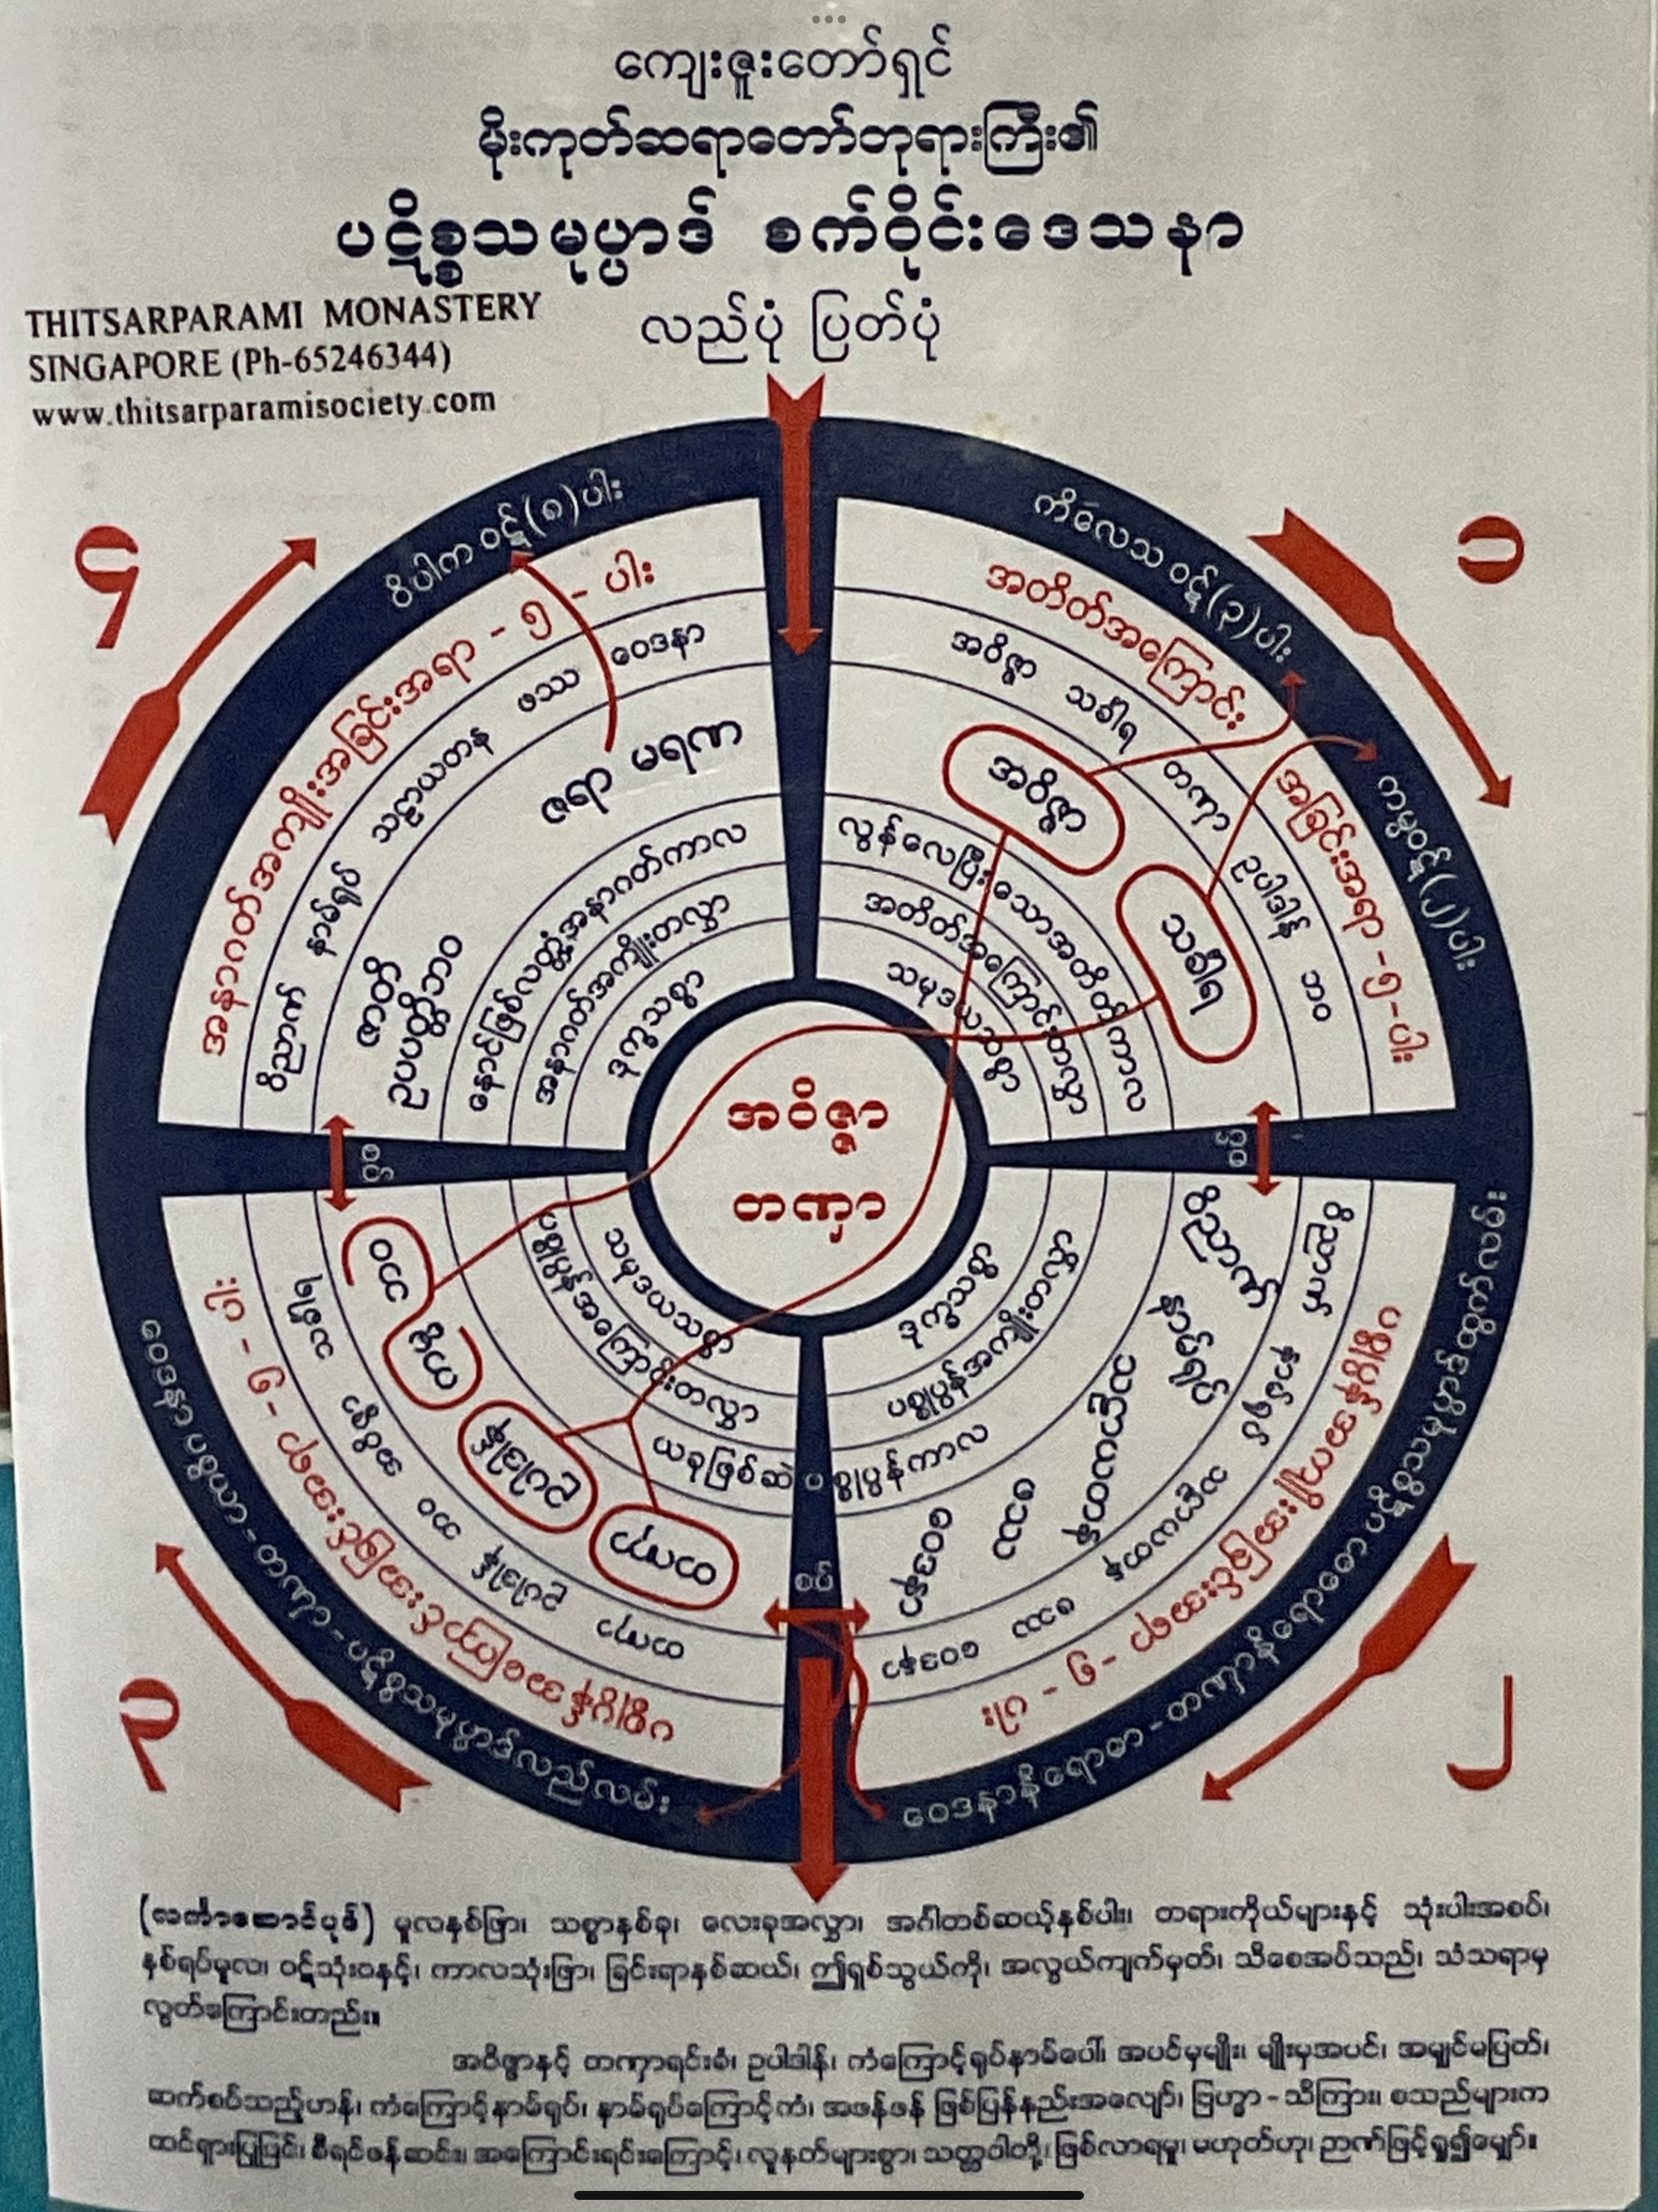 ကျေးဇူးတော်ရှင်
မိုးကုတ်ဆရာတော်ဘုရားကြီး၏
ပဋိစ္စသမုပ္ပာဒ် စက်ဝိုင်းဒေသနာ
လည်ပုံ ပြတ်ပုံ
THITSARPARAMI MONASTERY
SINGAPORE (Ph-65246344)
www.thitsarparamisociety.com
၁
ကိလေသဝဋ်(၃)ပါး
ကမ္မဝဋ်(၂)ပါး
အတိတ်အကြောင်း အခြင်းအရာ - ၅ - ပါး
အဝိဇ္ဇာ သင်္ခါရ တဏှာ ဥပါဒါန် ဘဝ
အဝိဇ္ဇာ
သင်္ခါရ
လွန်လေပြီးသောအတိတ်ကာလ
အတိတ်အကြောင်းတလွှာ
သမုဒယသစ္စာ
စပ်
၂
ဝိညာဏ် နာမ်ရုပ် သဠာယတန ဖဿ ဝေဒနာ
ပစ္စုပ္ပန်အကျိုးအခြင်းအရာ - ၅ - ပါး
ဝိညာဏ်
နာမ်ရုပ်
သဠာယတန
ဖဿ
ဝေဒနာ
ပစ္စုပ္ပန်အကျိုးတလွှာ
ဒုက္ခသစ္စာ
စပ်
ယခုဖြစ်ဆဲပစ္စုပ္ပန်ကာလ
၃
ဝေဒနာပစ္စယာ - တဏှာ - ပဋိစ္စသမုပ္ပာဒ်လည်လမ်း
ပစ္စုပ္ပန်အကြောင်းအခြင်းအရာ - ၅ - ပါး
တဏှာ ဥပါဒါန် ဘဝ အဝိဇ္ဇာ သင်္ခါရ
တဏှာ
ဥပါဒါန်
ကမ္မ
ဘဝ
ပစ္စုပ္ပန်အကြောင်းတလွှာ
သမုဒယသစ္စာ
စပ်
၄
ဝိပါကဝဋ်(၈)ပါး
အနာဂတ်အကျိုးအခြင်းအရာ - ၅ - ပါး
ဝိညာဏ် နာမ်ရုပ် သဠာယတန ဖဿ ဝေဒနာ
ဇာတိ
ဥပပတ္တိဘဝ
ဇရာ မရဏ
နောင်ဖြစ်လတ္တံ့အနာဂတ်ကာလ
အနာဂတ်အကျိုးတလွှာ
ဒုက္ခသစ္စာ
အဝိဇ္ဇာ
တဏှာ
(လင်္ကာဆောင်ပုဒ်) မူလနှစ်ဖြာ၊ သစ္စာနှစ်ခု၊ လေးခုအလွှာ၊ အင်္ဂါတစ်ဆယ့်နှစ်ပါး၊ တရားကိုယ်များနှင့် သုံးပါးအစပ်၊
နှစ်ရပ်မူလ၊ ဝဋ်သုံးဝနှင့်၊ ကာလသုံးဖြာ၊ ခြင်းရာနှစ်ဆယ်၊ ဤရှစ်သွယ်ကို၊ အလွယ်ကျက်မှတ်၊ သိစေအပ်သည်၊ သံသရာမှ
လွတ်ကြောင်းတည်း။
အဝိဇ္ဇာနှင့် တဏှာရင်းခံ၊ ဥပါဒါန်၊ ကံကြောင့်ရုပ်နာမ်ပေါ်၊ အပင်မှမျိုး၊ မျိုးမှအပင်၊ အမျှင်မပြတ်၊
ဆက်စပ်သည့်ဟန်၊ ကံကြောင့်နာမ်ရုပ်၊ နာမ်ရုပ်ကြောင့်ကံ၊ အဖန်ဖန် ဖြစ်ပြန်နည်းအလျော်၊ ဗြဟ္မာ - သိကြား၊ စသည်များက
ထင်ရှားပြုပြင်၊ စီရင်ဖန်ဆင်း၊ အကြောင်းရင်းကြောင့်၊ လူနတ်များစွာ၊ သတ္တဝါတို့၊ ဖြစ်လာရမှု၊ မဟုတ်ဟု၊ ဉာဏ်ဖြင့်ရှု၍မျှော်။